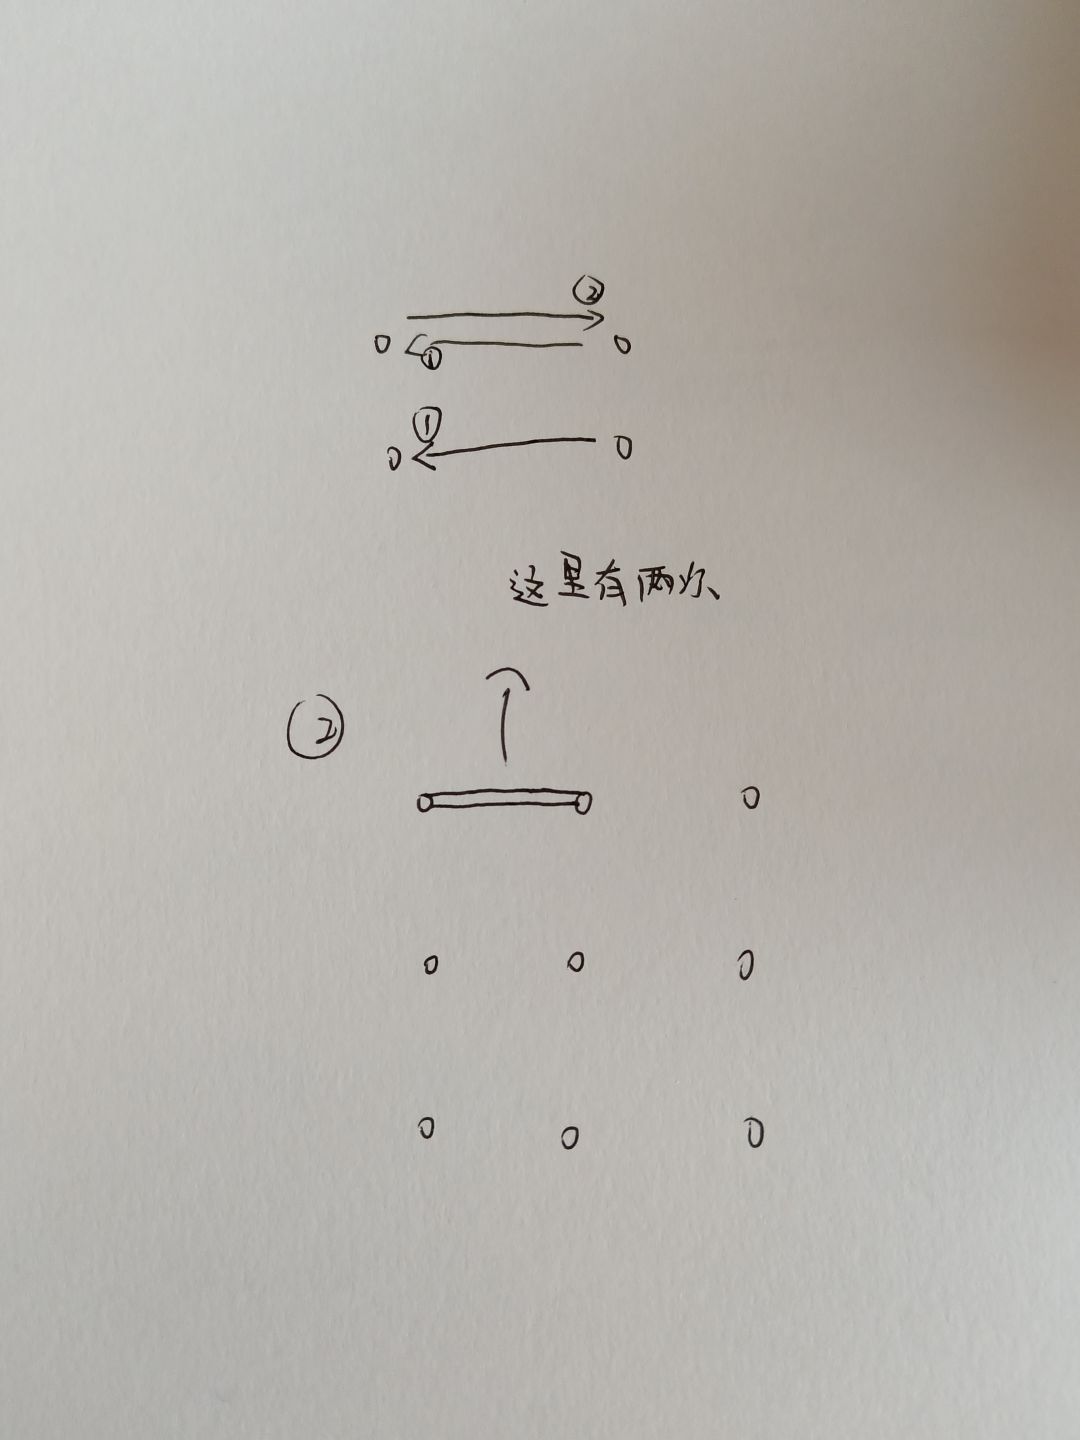 ②
①
①
这里有两次
②